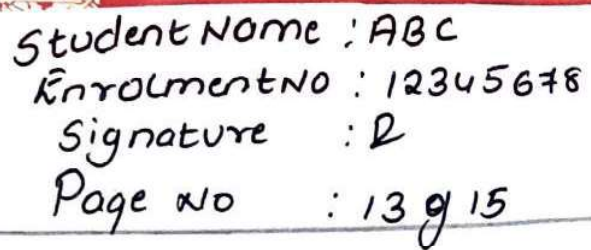 Student Name : ABC
Enrolment No : 12345678
Signature : R
Page No : 13 of 15